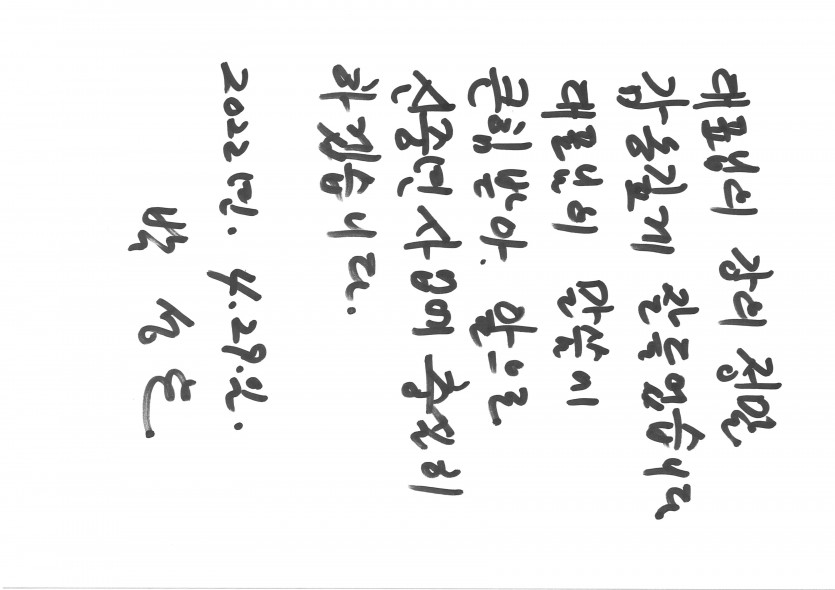 대표님의 강의 정말
감명깊게 잘들었습니다
대표님의 말씀에
큰힘받아. 앞으로
신중년사업에 충실히
하겠습니다.
2022년. 4.29.일.